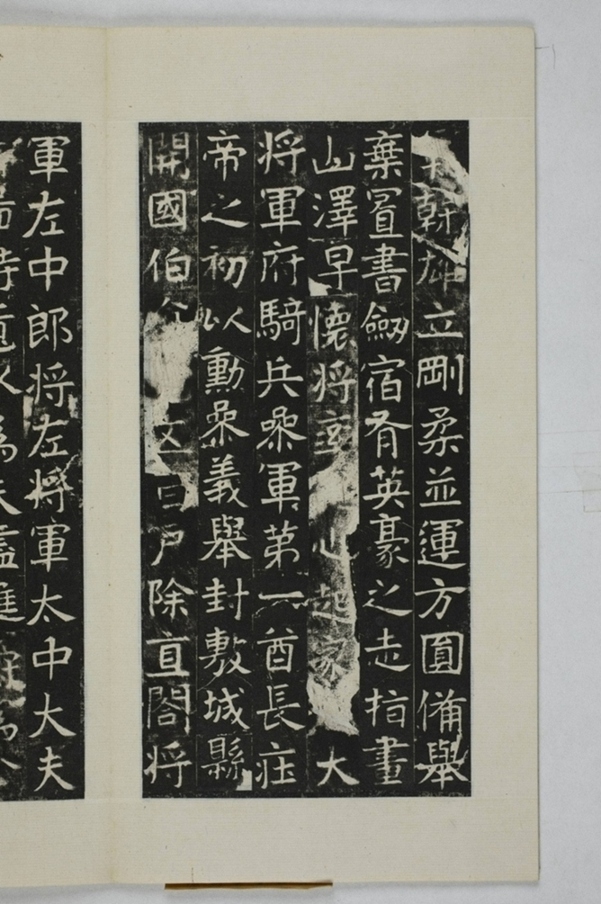 幹雄立剛柔並運方圓備舉
棄置書劒宿有英豪之志指畫
山澤早懷將率心起家大
將軍府騎兵叅軍第一酋長莊
帝之初以勳叅義舉封敷城縣
開國伯食五百戶除直閤將
軍左中郎將左將軍太中大夫